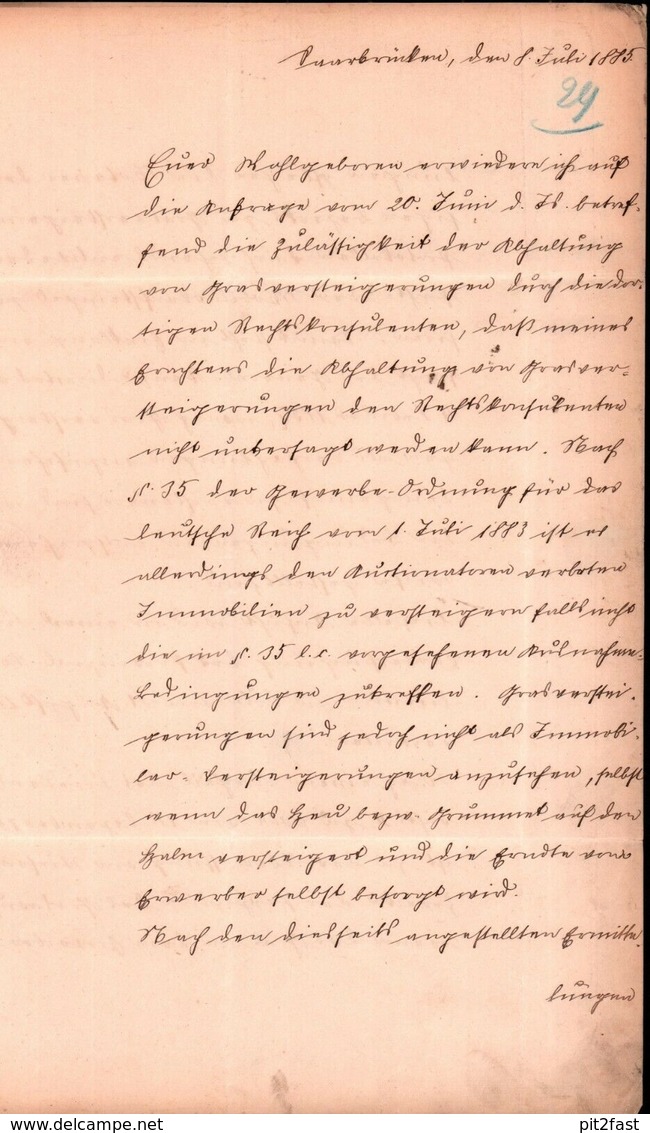 Saarbrücken, den 8. Juli 1885.
24
Euer Wohlgeboren erwiedere ich auf
die Anfrage vom 20. Juni d. Js. betref-
fend die Zulässigkeit der Abhaltung
von Grasversteigerungen durch die dor-
tigen Rechtskonsulenten, daß meines
Erachtens die Abhaltung von Grasver-
steigerungen den Rechtskonsulenten
nicht untersagt werden kann. Nach
§. 35 der Gewerbe-Ordnung für das
deutsche Reich vom 1. Juli 1883 ist es
allerdings den Auctionatoren verboten
Immobilien zu versteigern falls nicht
die im §. 35 l.c. vorgesehenen Ausnahme-
bedingungen zutreffen. Grasverstei-
gerungen sind jedoch nicht als Immobi-
lar-Versteigerungen anzusehen, selbst
wenn das Heu bezw. Grummet auf den
Halm versteigert und die Erndte vom
Erwerber selbst besorgt wird.
Nach den diesseits angestellten Ermitte-
lungen
www.delcampe.net
pit2fast